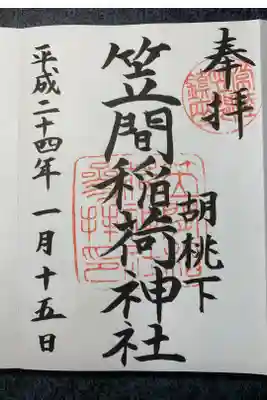 奉拝
胡桃下
笠間稲荷神社
平成二十四年 一月十五日